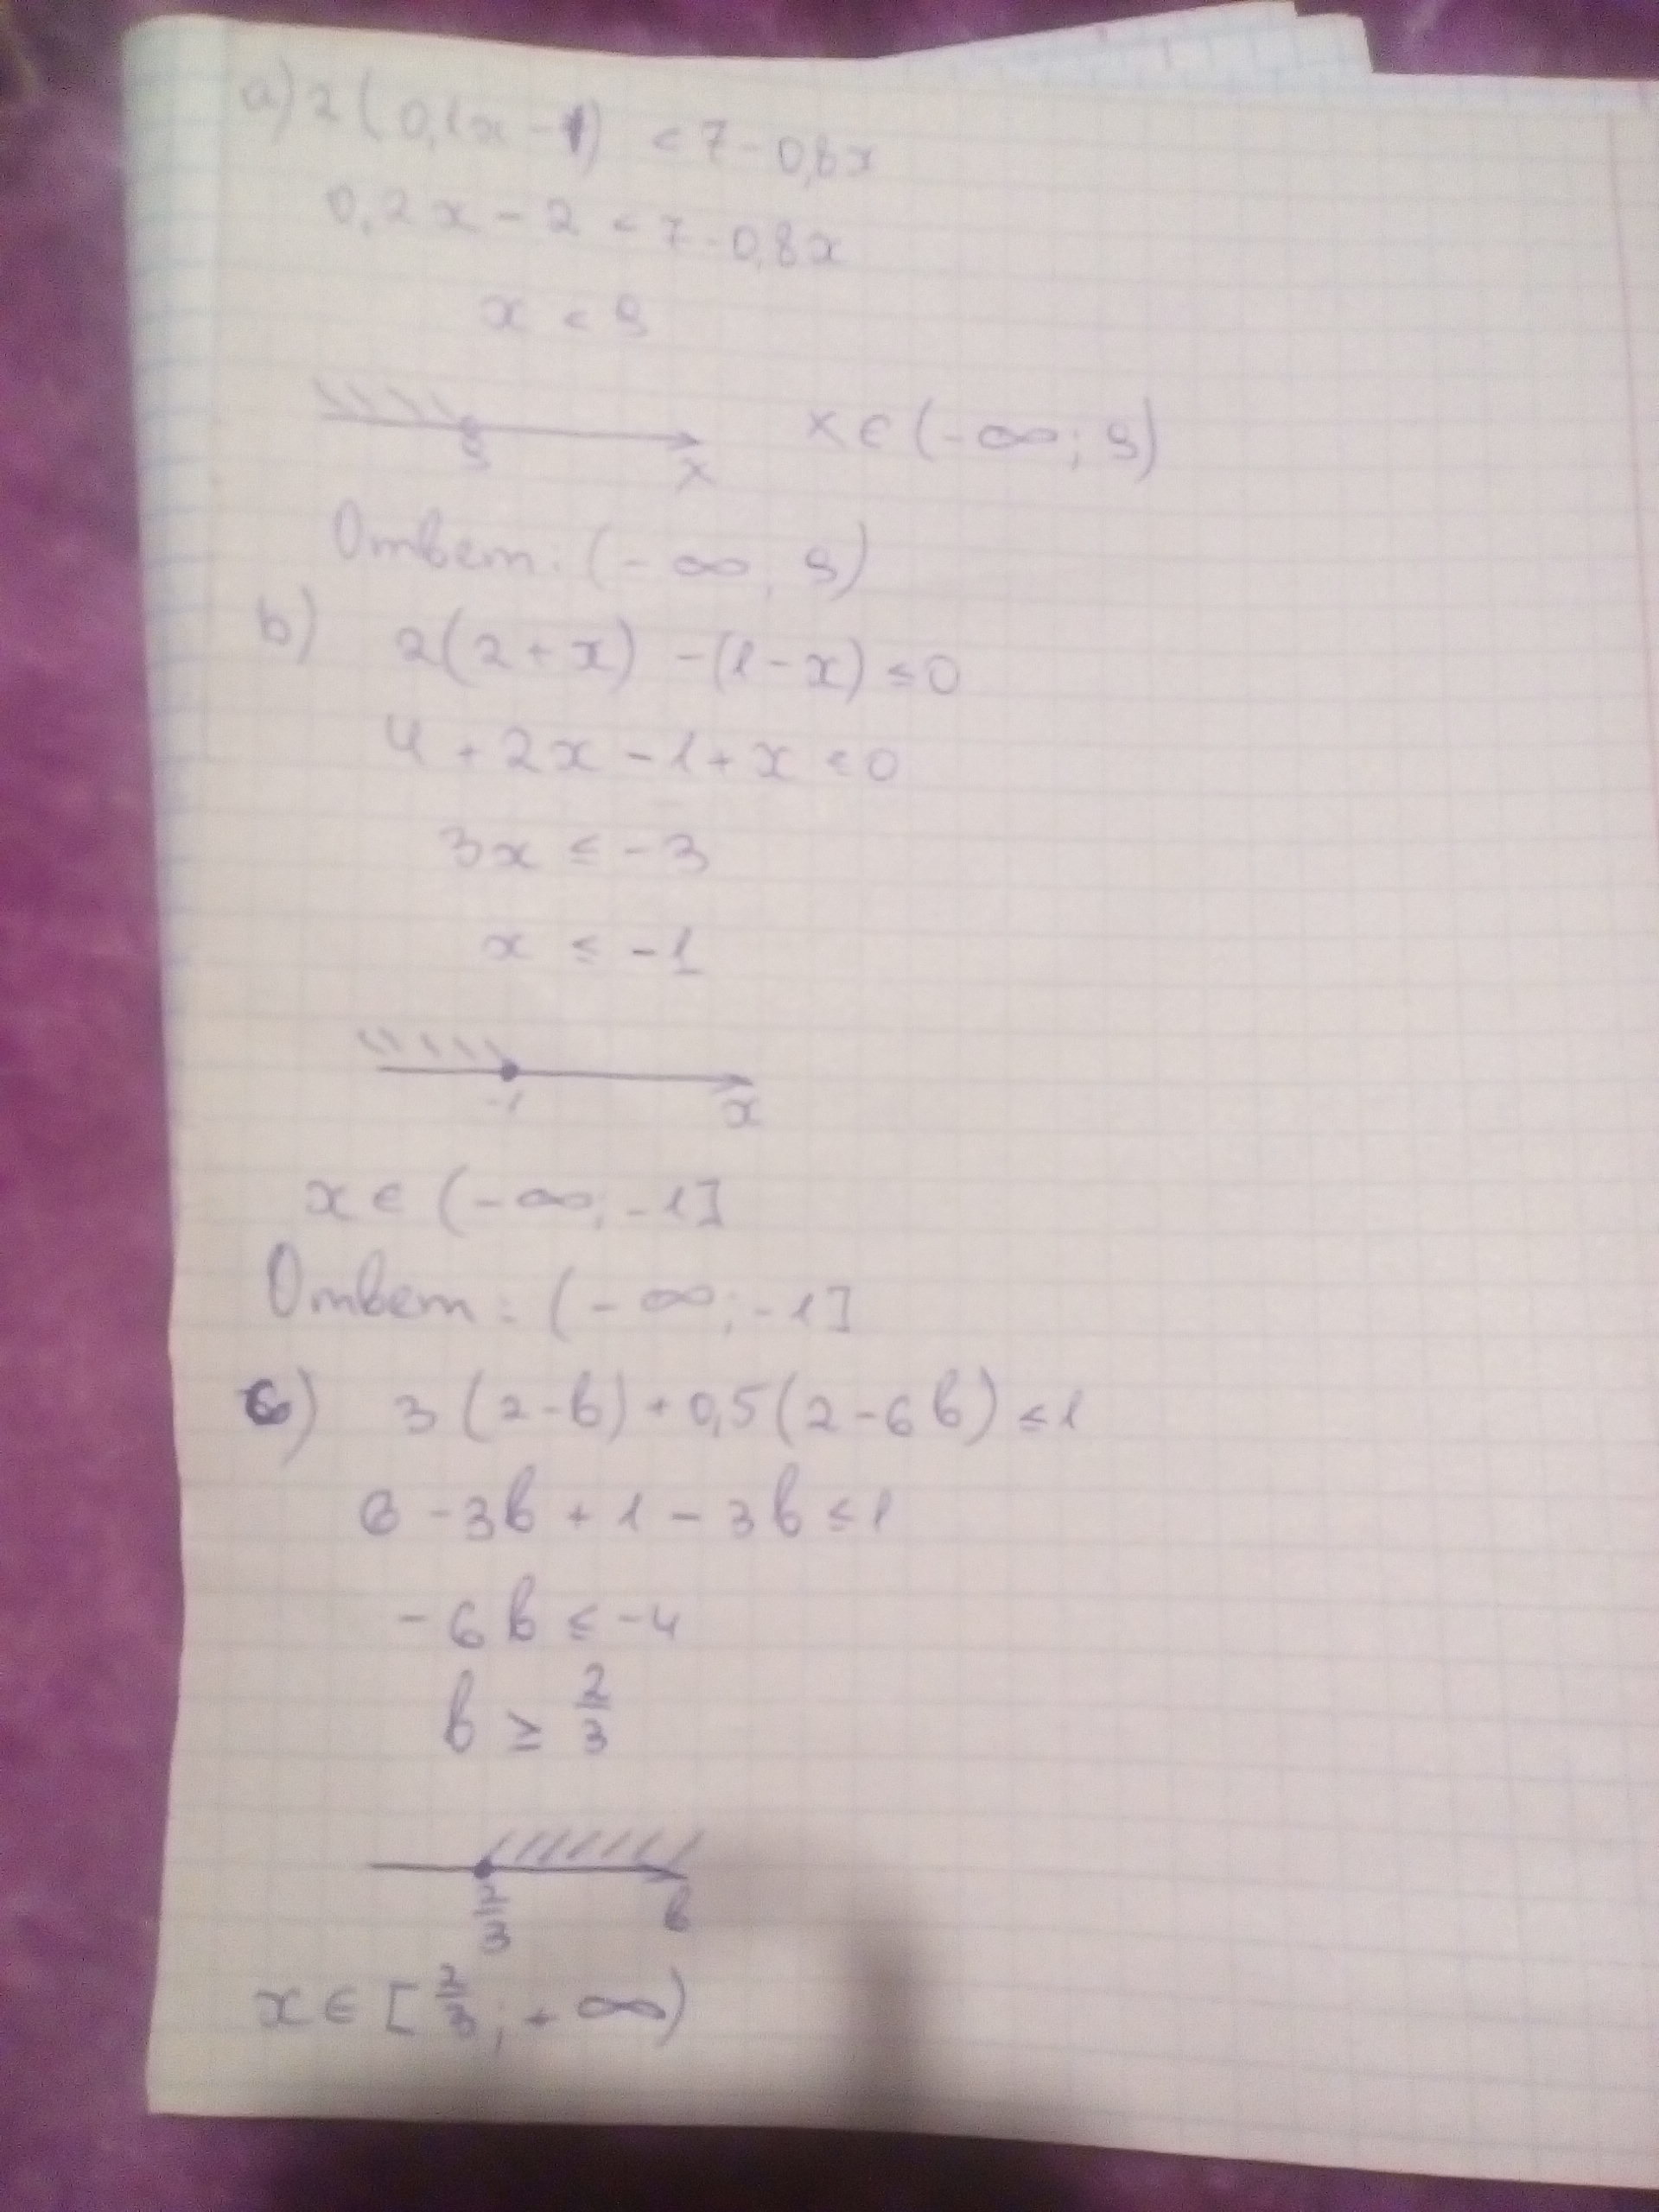 a) 2(0,1x - 1) < 7 - 0,8x
0,2x - 2 < 7 - 0,8x
x < 9
9 x x ∈ (-∞; 9)
Ответ: (-∞; 9)
b) 2(2 + x) - (1 - x) ≤ 0
4 + 2x - 1 + x ≤ 0
3x ≤ -3
x ≤ -1
-1 x
x ∈ (-∞; -1]
Ответ: (-∞; -1]
c) 3(2 - b) + 0,5(2 - 6b) ≤ 1
6 - 3b + 1 - 3b ≤ 1
-6b ≤ -4
b ≥ 2/3
2/3 b
x ∈ [2/3; +∞)